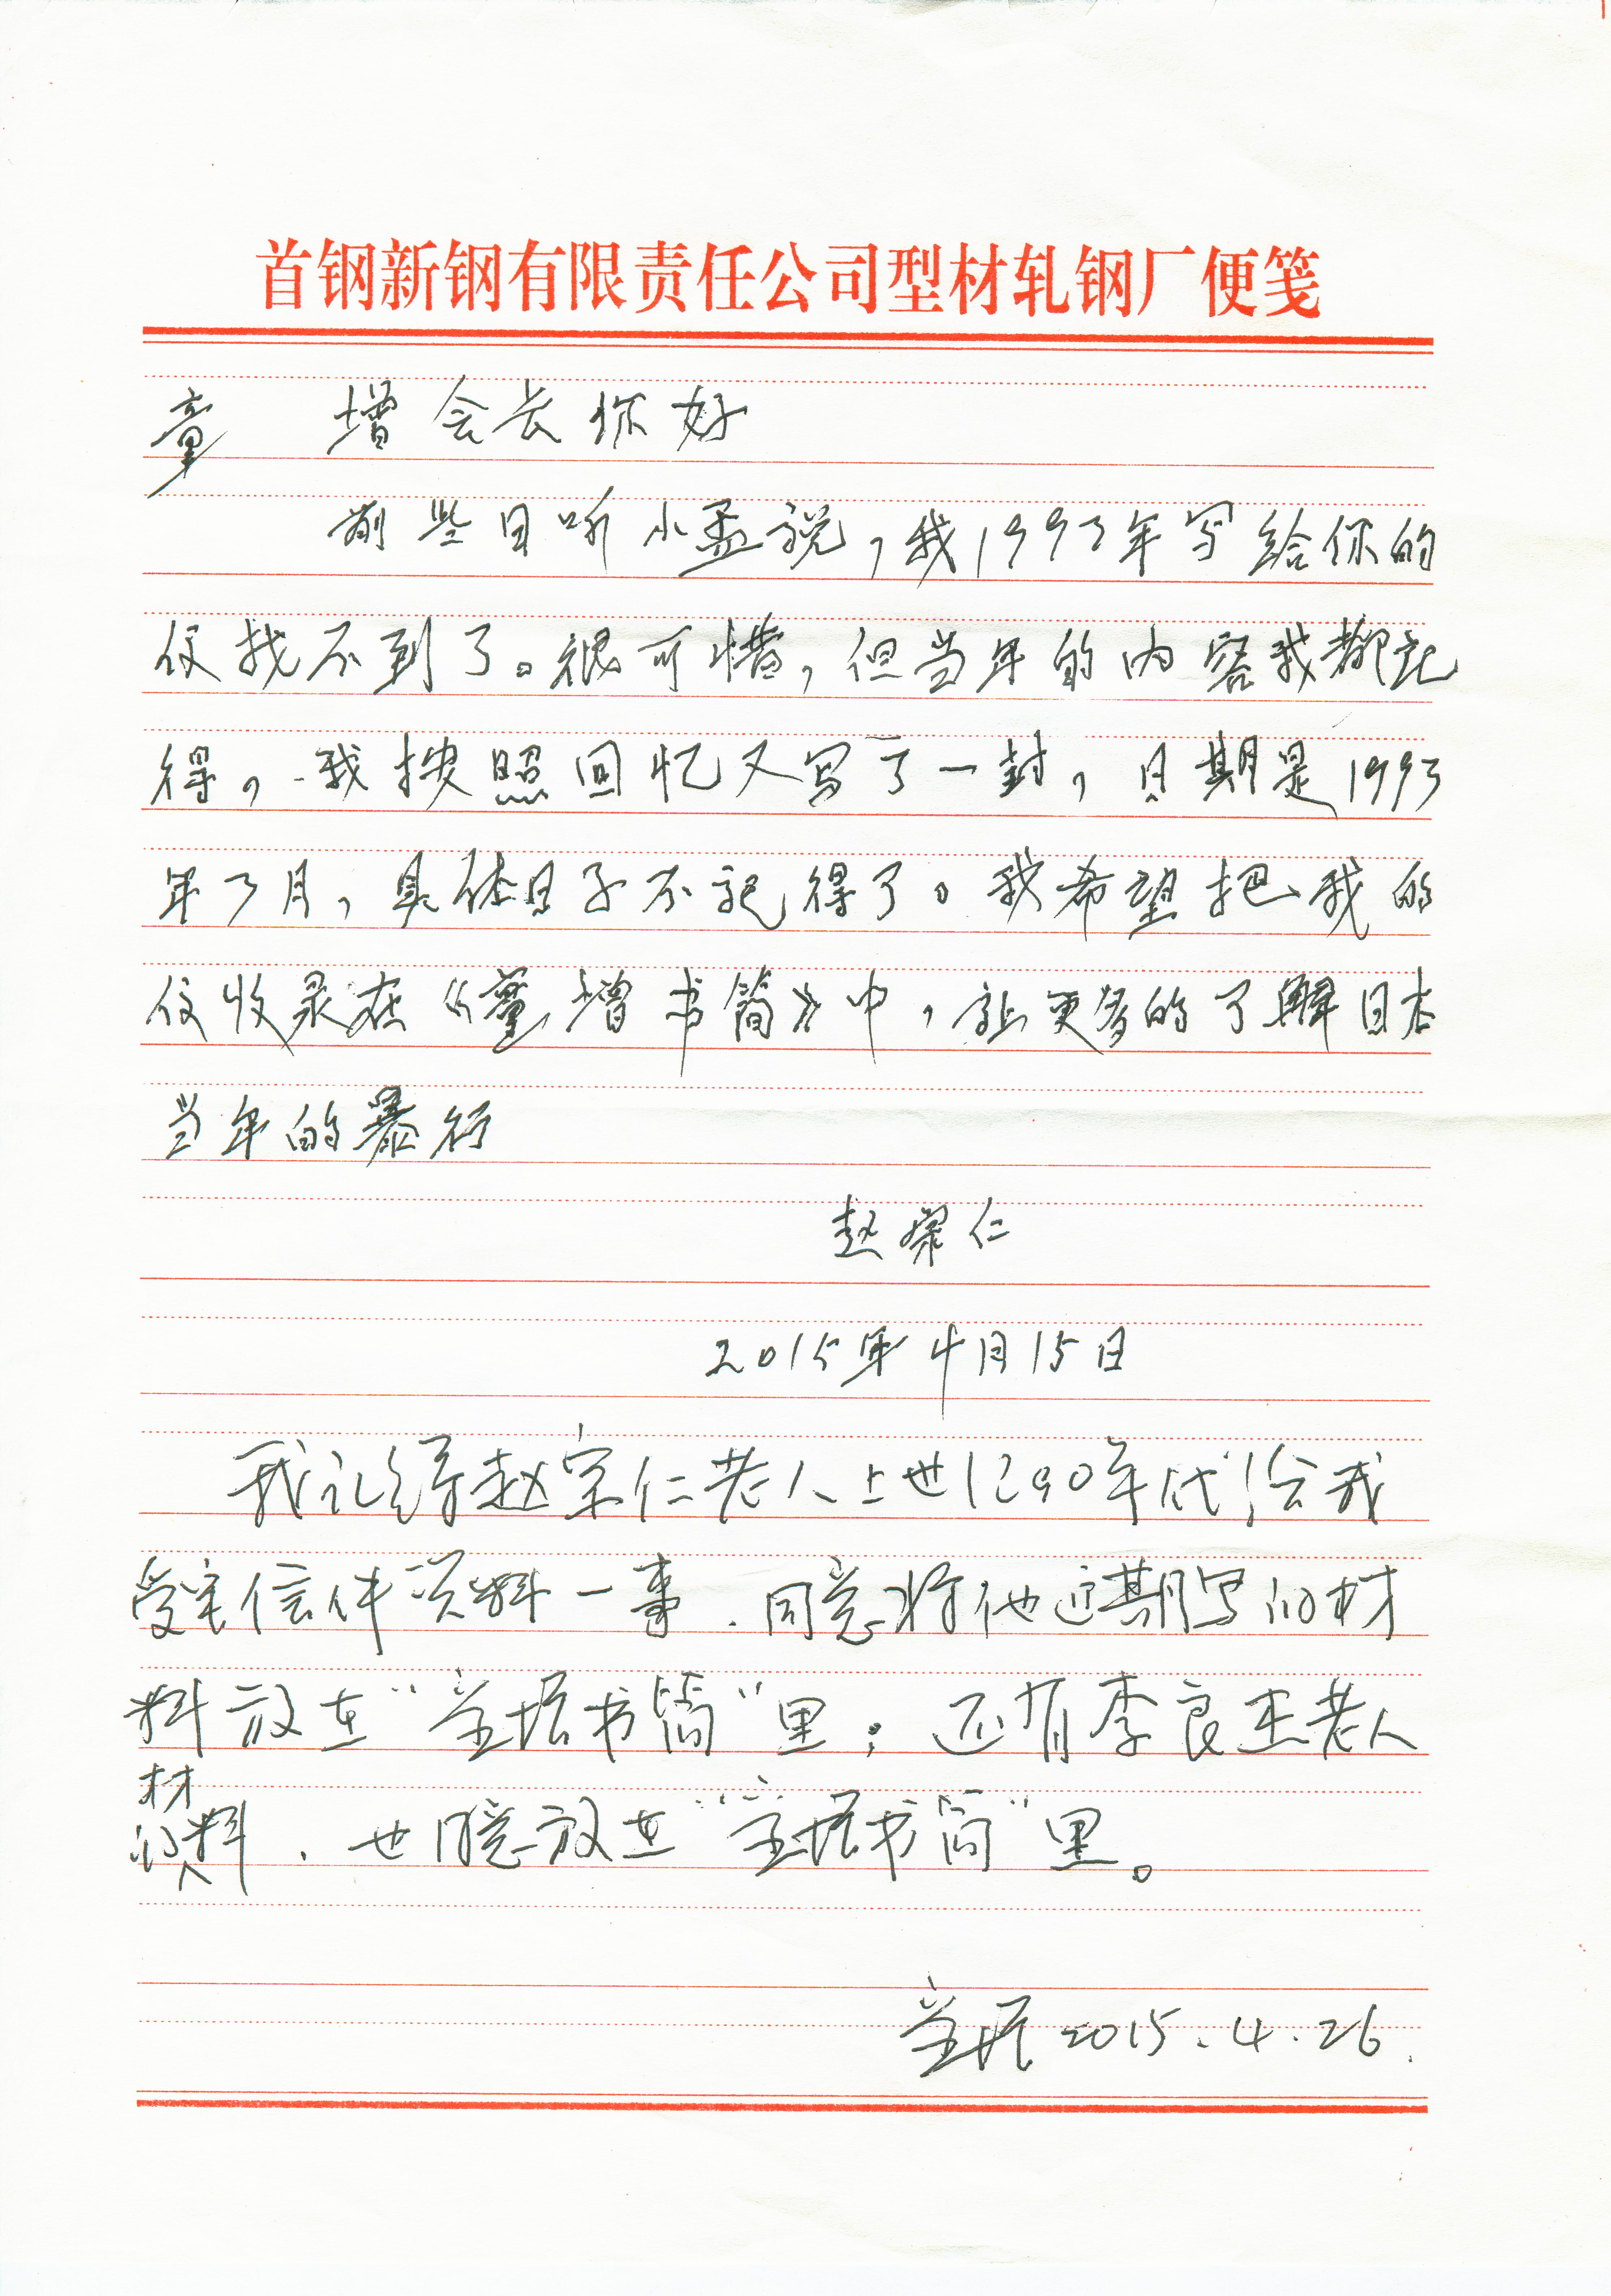 首钢新钢有限责任公司型材轧钢厂便笺
童 增会长你好
前些日听小孟说，我1993年写给你的
仅找不到了。很可惜，但当年的内容我都记
得，我按照回忆又写了一封，日期是1993
年7月，具体日子不记得了。我希望把我的
仅收录在《童增书简》中，让更多的了解日本
当年的暴行
赵宗仁
2015年4月15日
我记得赵宗仁老人上世纪90年代给我
受害信件资料一事．同意将他近期写的材
料放在“童增书简”里；还有李良杰老人
材
的料．也同意放在“童增书简”里。
童增2015.4.26.